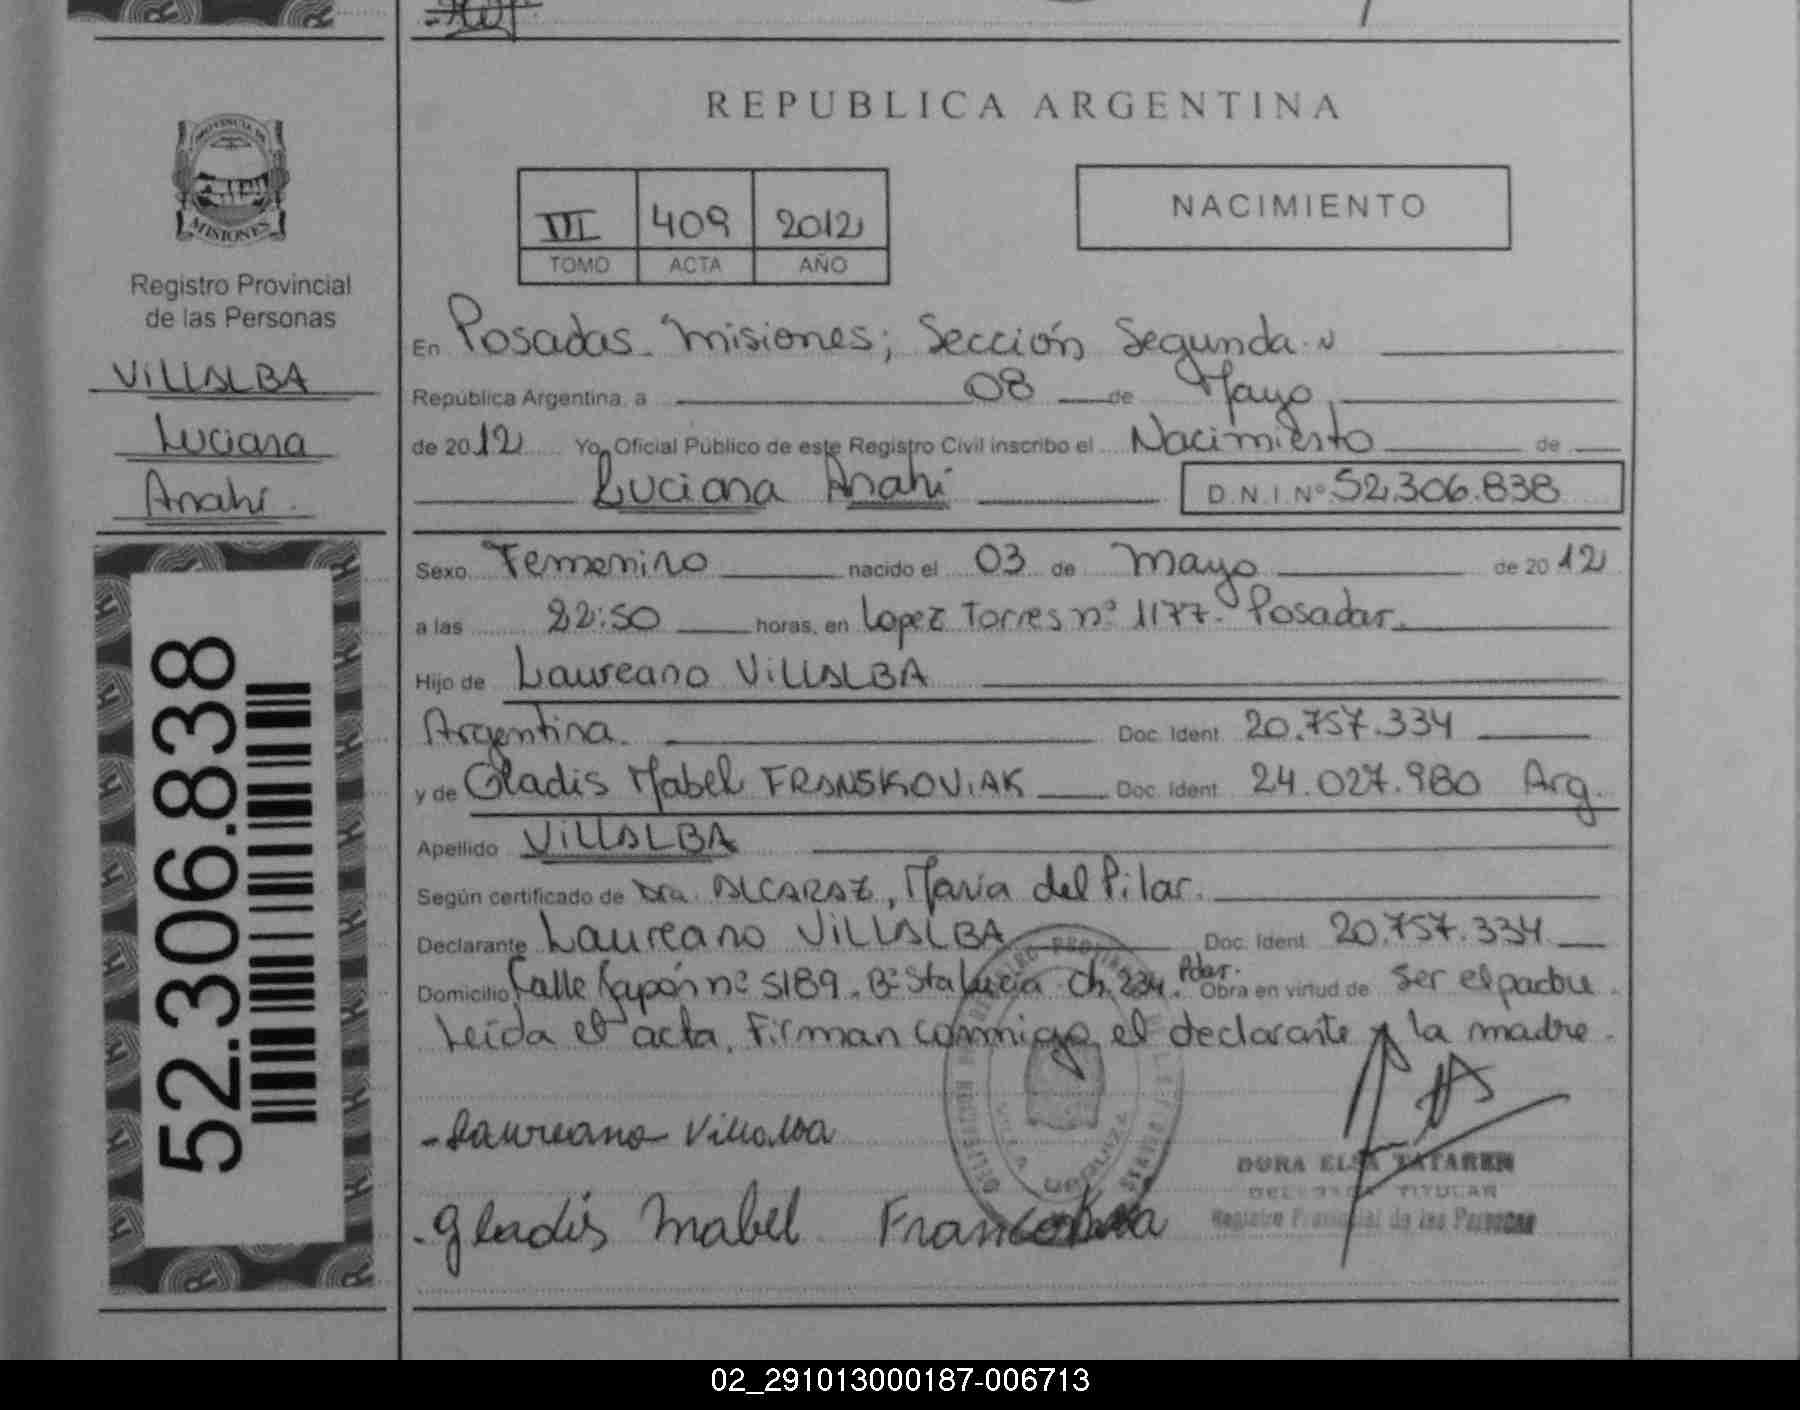 REPUBLICA ARGENTINA
PROVINCIA DE
MISIONES
Registro Provincial
de las Personas
VILLALBA
Luciana
Anahi.
52.306.838
III 409 2012
TOMO ACTA AÑO
NACIMIENTO
En Posadas. Misiones; Sección Segunda.
República Argentina, a 08 de Mayo
de 2012 Yo, Oficial Público de este Registro Civil inscribo el Nacimiento de
Luciana Anahi D.N.I. Nº 52.306.838
Sexo Femenino nacido el 03 de Mayo de 2012
a las 22:50 horas, en Lopez Torres nº 1177. Posadas.
Hijo de Laureano VILLALBA
Argentina. Doc. Ident. 20.757.334
y de Gladis Mabel FRANSKOVIAK Doc. Ident. 24.027.980 Arg.
Apellido VILLALBA
Según certificado de Dra. ALCARAZ, Maria del Pilar.
Declarante Laureano VILLALBA Doc. Ident. 20.757.334
Domicilio Calle Japón nº 5189. Bº Sta Lucia Ch. 234. Pdas. Obra en virtud de ser el padre.
Leída el acta, Firman conmigo el declarante y la madre.
- Laureano Villalba
- gladis Mabel
DORA ELSA TATAREN
DELEGADA TITULAR
Registro Provincial de las Personas
02_291013000187-006713